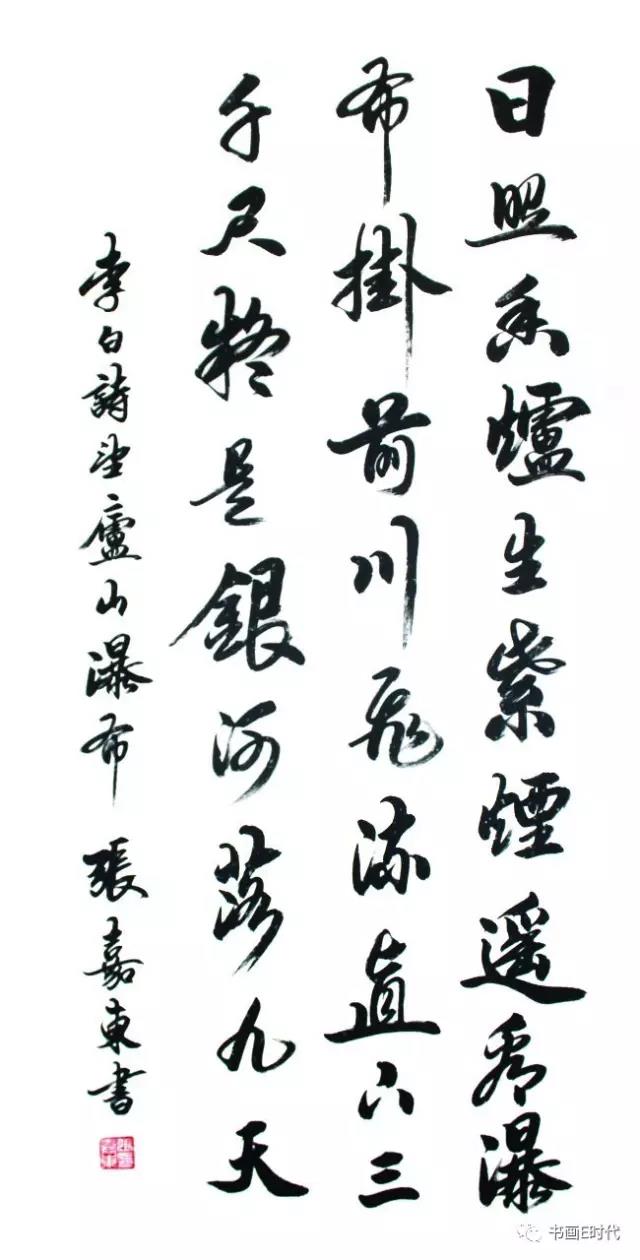 日照香爐生紫煙遥看瀑
布掛前川飛流直下三
千尺疑是銀河落九天
李白詩望廬山瀑布 張嘉東書
书画E时代